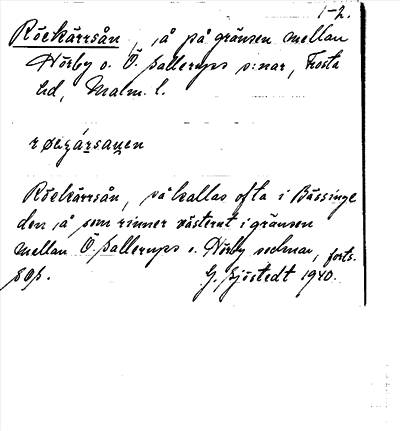 1-2.
Röekärrsån, å på gränsen mellan
Hörby o. Ö. Sallerups s:nar, Frosta
hd, Malm. l.
røəɟársaꞑen
Röekärrsån, så kallas ofta i Bässinge
den å som rinner västerut i gränsen
mellan Ö. Sallerups o. Hörby socknar, forts.
G. Sjöstedt 1940.